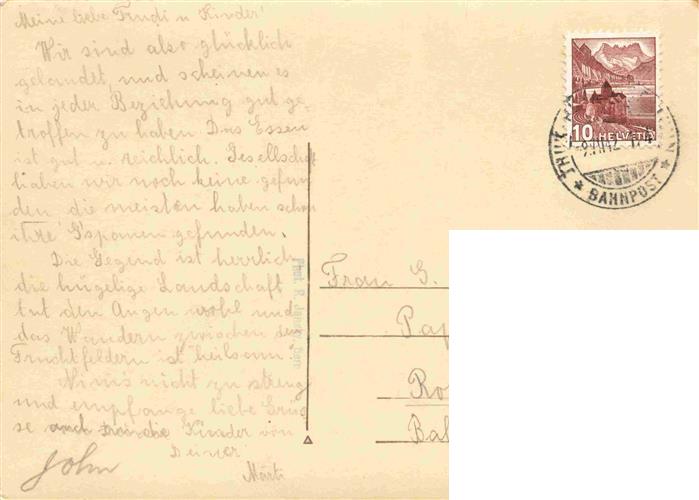 Meine liebe Trudi u Kinder!
Wir sind also glücklich
gelandet, und scheinen es
in jeder Beziehung gut ge
troffen zu haben. Das Essen
ist gut u. reichlich. Gesellschaft
haben wir noch keine gefun
den, die meisten haben schon
ihre G'spanen gefunden.
Die Gegend ist herrlich
die hügelige Landschaft
tut den Augen wohl und
das Wandern zwischen den
Fruchtfeldern ist "heilsam".
Nim's nicht zu streng
und empfange liebe Grüs
se auch die Kinder von
Deiner
Märti
John
Phot. R.
10 HELVETIA
BAHNPOST
Frau G.
Pap
Ro
Bal